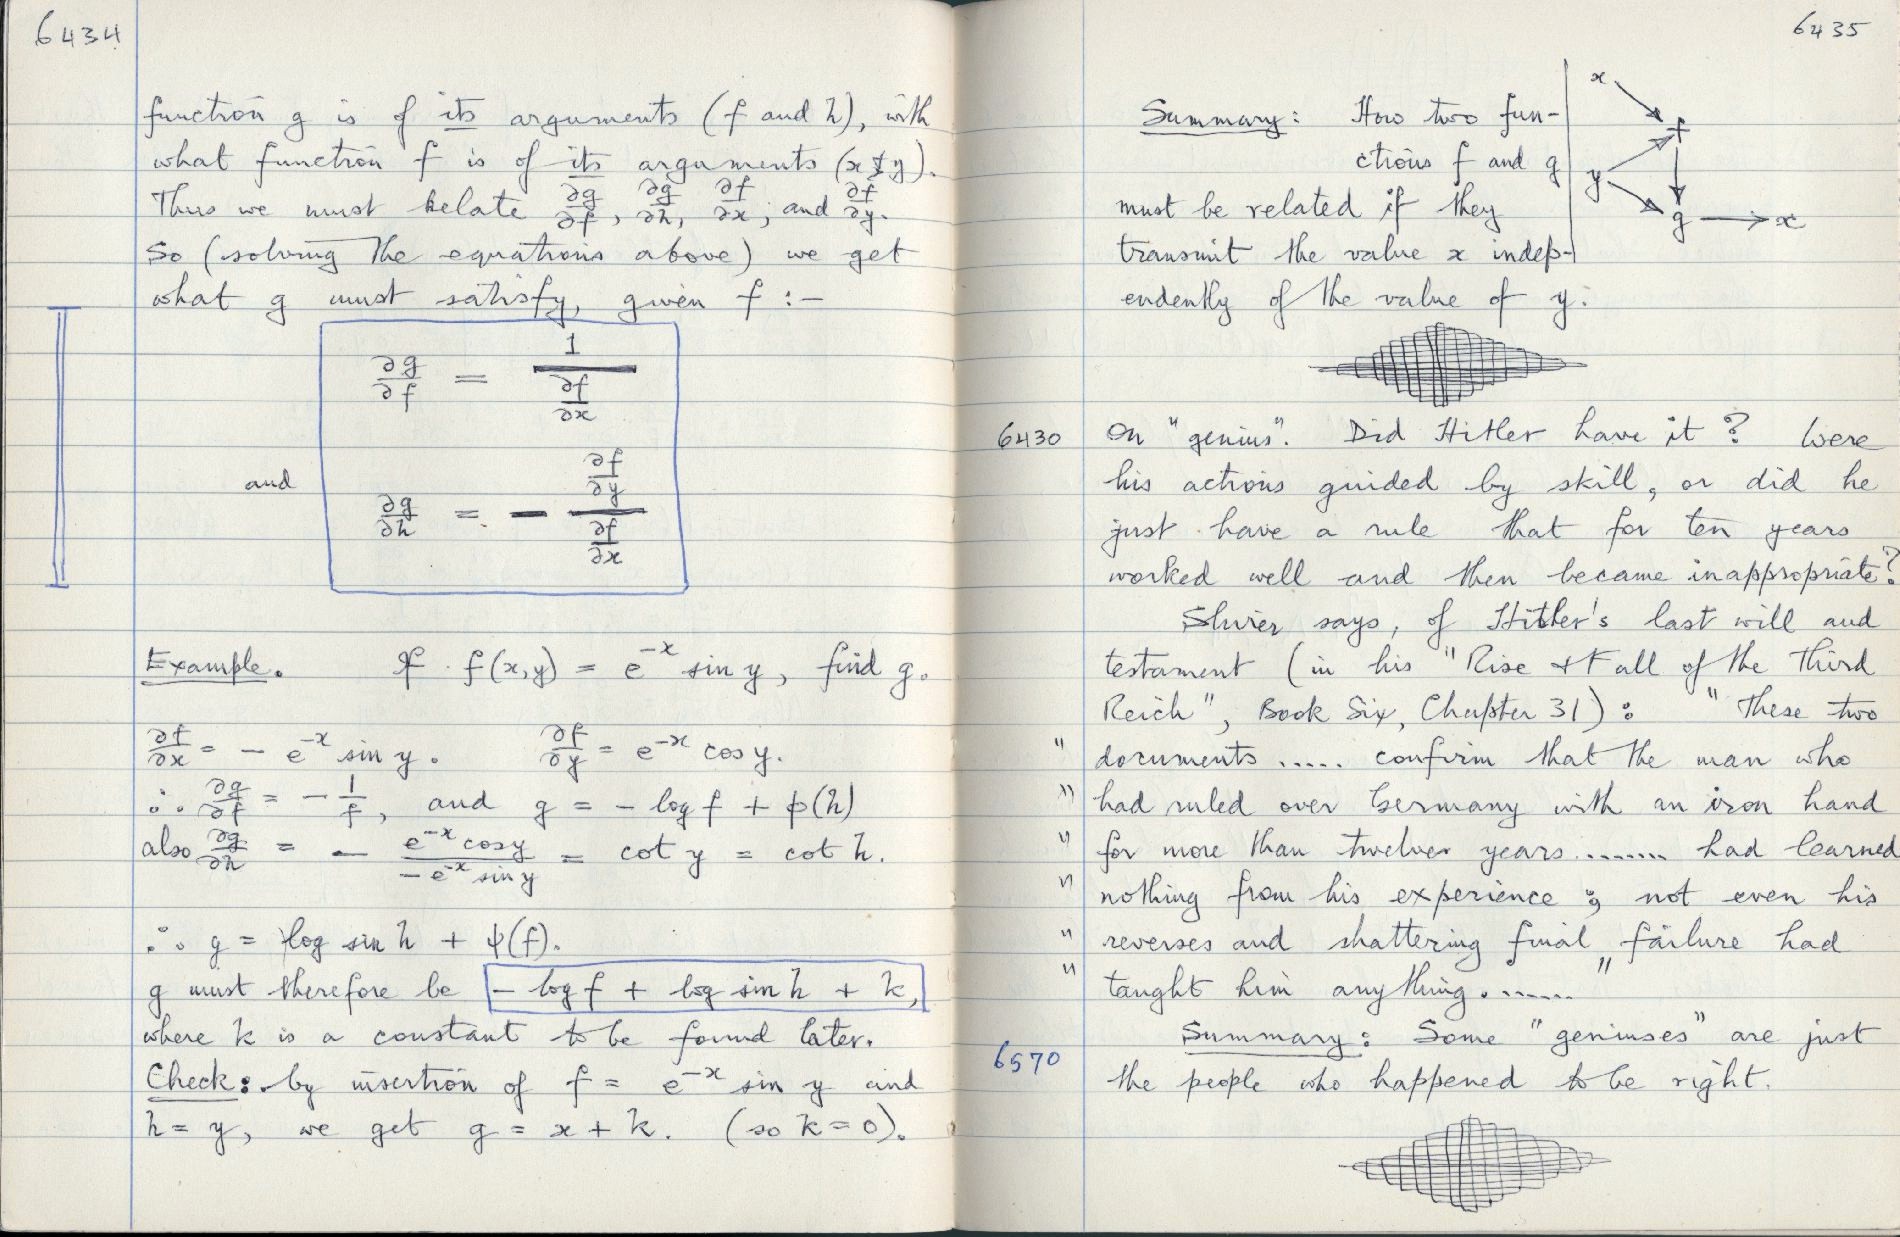 6434
function g is of its arguments (f and h), with
what function f is of its arguments (x & y).
Thus we must relate ∂g/∂f, ∂g/∂h, ∂f/∂x, and ∂f/∂y.
So (solving the equations above) we get
what g must satisfy, given f :—
∂g/∂f = 1/(∂f/∂x)
and ∂g/∂h = − (∂f/∂y)/(∂f/∂x)
Example. If f(x,y) = e^{-x} sin y, find g.
∂f/∂x = − e^{-x} sin y. ∂f/∂y = e^{-x} cos y.
∴ ∂g/∂f = − 1/f, and g = − log f + φ(h)
also ∂g/∂h = − (e^{-x} cos y)/(− e^{-x} sin y) = cot y = cot h.
∴ g = log sin h + ψ(f).
g must therefore be − log f + log sin h + k,
where k is a constant to be found later.
Check: by insertion of f = e^{-x} sin y and
h = y, we get g = x + k. (so k = 0).
6435
Summary: How two fun-
ctions f and g
must be related if they
transmit the value x indep-
endently of the value of y.
x
f
y
g → x
6430 On "genius". Did Hitler have it? Were
his actions guided by skill, or did he
just have a rule that for ten years
worked well and then became inappropriate?
Shirer says, of Hitler's last will and
testament (in his "Rise & Fall of the Third
Reich", Book Six, Chapter 31): "These two
" documents ..... confirm that the man who
" had ruled over Germany with an iron hand
" for more than twelve years ........ had learned
" nothing from his experience ; not even his
" reverses and shattering final failure had
" taught him anything. ......"
Summary: Some "geniuses" are just
6570 the people who happened to be right.